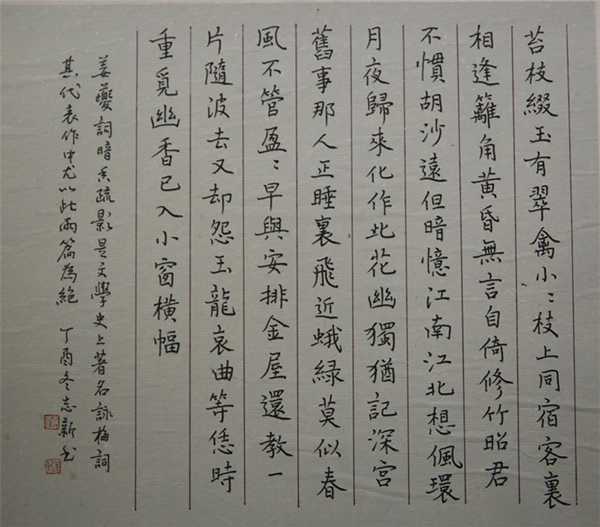 苔枝綴玉有翠禽小〻枝上同宿客裏
相逢籬角黃昏無言自倚修竹昭君
不慣胡沙遠但暗憶江南江北想佩環
月夜歸來化作此花幽獨猶記深宮
舊事那人正睡裏飛近蛾綠莫似春
風不管盈〻早與安排金屋還教一
片隨波去又却怨玉龍哀曲等恁時
重覓幽香已入小窗橫幅
姜夔詞暗香疏影是文學史上著名詠梅詞
其代表作中尤以此兩篇為絕 丁酉冬志新書